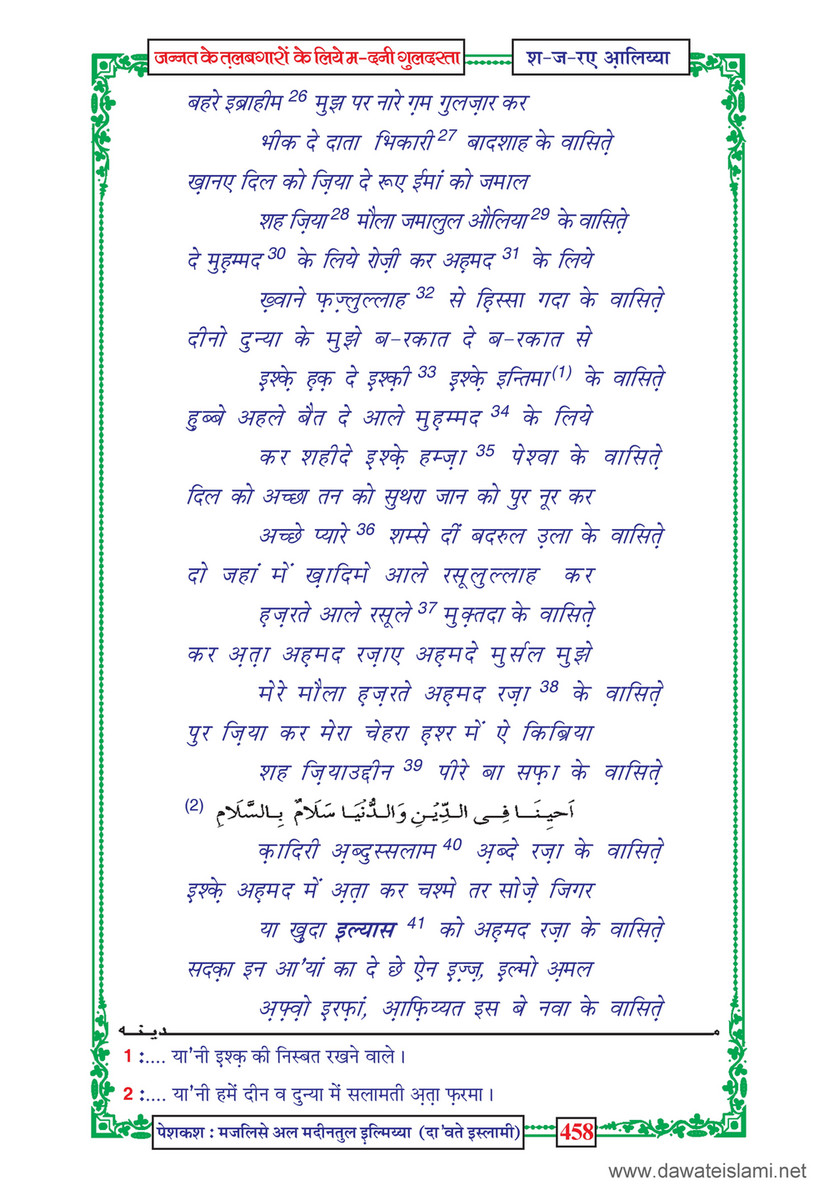 जन्नत के त़लबगारों के लिये म-दनी गुलदस्ता
श-ज-रए आ़लिय्या
बहरे इब्राहीम 26 मुझ पर नारे ग़म गुलज़ार कर
भीक दे दाता भिकारी 27 बादशाह के वासित़े
ख़ानए दिल को ज़िया दे रूए ईमां को जमाल
शह ज़िया 28 मौला जमालुल औलिया 29 के वासित़े
दे मुह़म्मद 30 के लिये रोज़ी कर अह़मद 31 के लिये
ख़्वाने फ़ज़्लुल्लाह 32 से हि़स्सा गदा के वासित़े
दीनो दुन्या के मुझे ब-रकात दे ब-रकात से
इ़श्के़ ह़क़ दे इ़श्क़ी 33 इ़श्के़ इन्तिमा (1) के वासित़े
हु़ब्बे अहले बैत दे आले मुह़म्मद 34 के लिये
कर शहीदे इ़श्के़ हम्ज़ा 35 पेश्वा के वासित़े
दिल को अच्छा तन को सुथरा जान को पुर नूर कर
अच्छे प्यारे 36 शम्से दीं बदरुल उ़ला के वासित़े
दो जहां में ख़ादिमे आले रसूलुल्लाह कर
ह़ज़रते आले रसूले 37 मुक़्तदा के वासित़े
कर अ़त़ा अह़मद रज़ाए अह़मदे मुर्सल मुझे
मेरे मौला ह़ज़रते अह़मद रज़ा 38 के वासित़े
पुर ज़िया कर मेरा चेहरा ह़श्र में ऐ किब्रिया
शह ज़ियाउद्दीन 39 पीरे बा सफ़ा के वासित़े
(2) اَحيِنَا فِى الدِّيْنِ وَالدُّنْيَا سَلَامٌ بِالسَّلَامِ
क़ादिरी अ़ब्दुस्सलाम 40 अ़ब्दे रज़ा के वासित़े
इ़श्के़ अह़मद में अ़त़ा कर चश्मे तर सोज़े जिगर
या खु़दा इल्यास 41 को अह़मद रज़ा के वासित़े
सदक़ा इन आ'यां का दे छे ऐ़न इ़ज़्ज़, इ़ल्मो अ़मल
अ़फ़्वो इ़रफ़ां, आ़फ़िय्यत इस बे नवा के वासित़े
مـدينـه
1 :.... या'नी इ़श्क़ की निस्बत रखने वाले ।
2 :.... या'नी हमें दीन व दुन्या में सलामती अ़त़ा फ़रमा ।
पेशकश : मजलिसे अल मदीनतुल इ़ल्मिय्या (दा'वते इस्लामी)
458
www.dawateislami.net